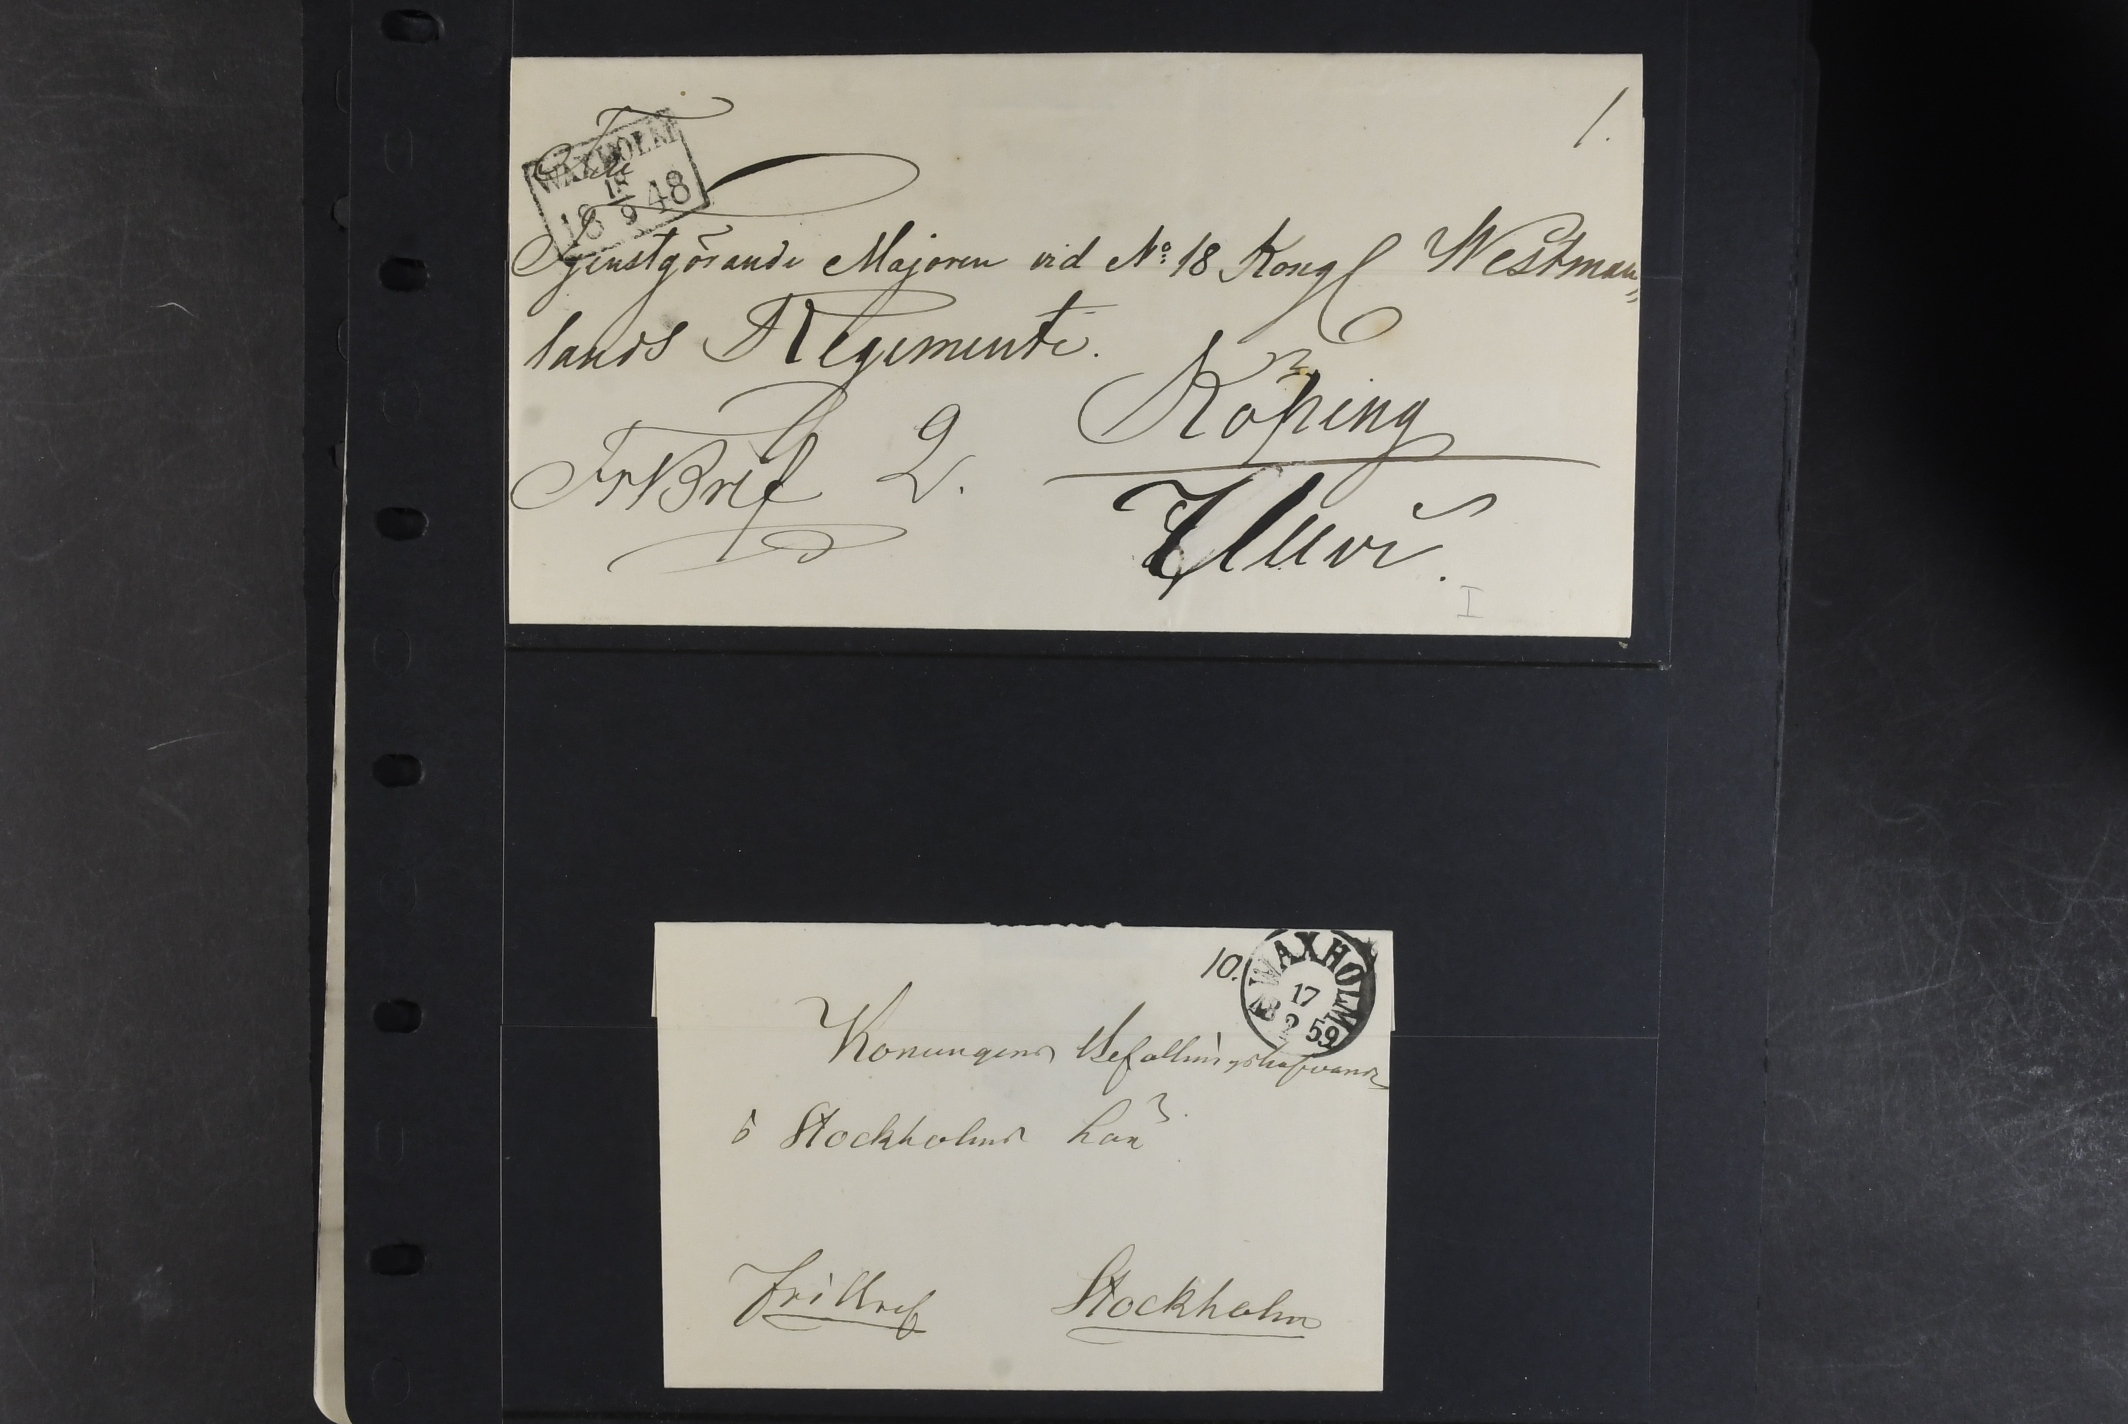 1.
WAXHOLM
18
18 9 48
Till
Tjenstgörande Majoren vid No: 18 Kongl Westman„
lands Regemente.
Köping
FrBref 2.
I
10.
WAXHOLM
17
2 59
Konungens Befallningshafvande
i Stockholms Län
fribref Stockholm